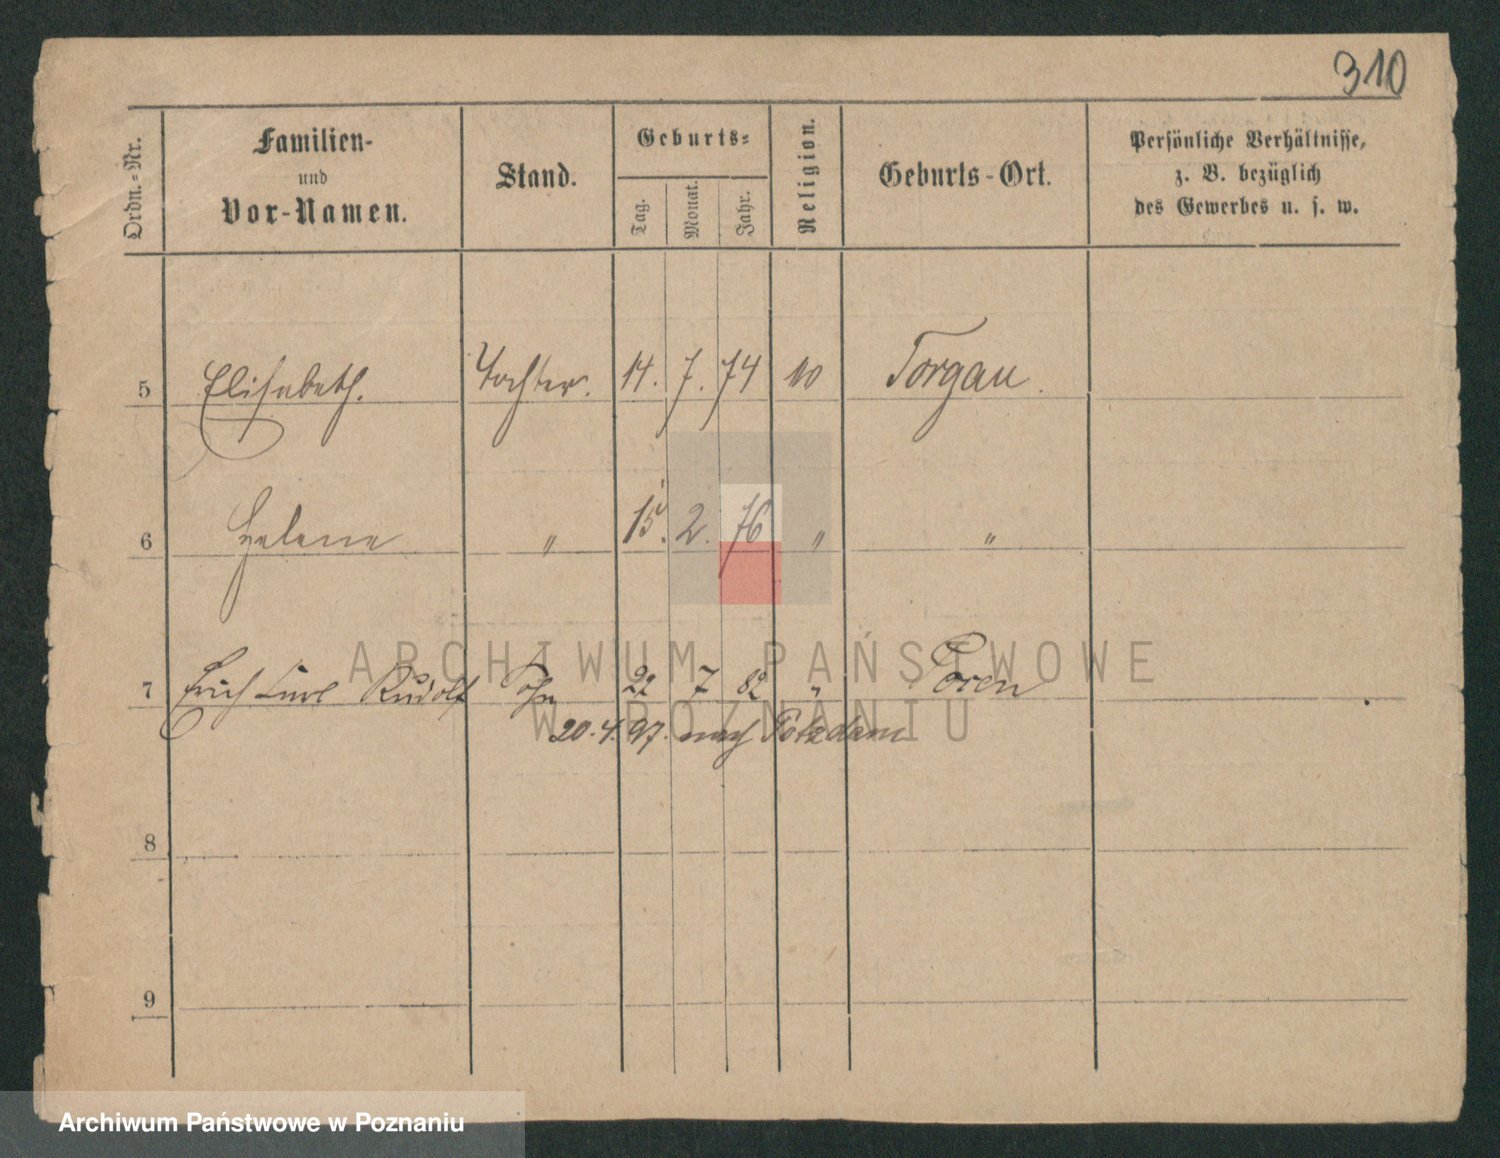 310
Ordn.-Nr.
Familien-
und
Vor-Namen.
Stand.
Geburts-
Tag.
Monat.
Jahr.
Religion.
Geburts-Ort.
Persönliche Verhältnisse,
z. B. bezüglich
des Gewerbes u. s. w.
5 Elisabeth. Tochter. 14. 7. 74 Torgau.
6 Helene " 15. 2. 76 " "
7 Erich Curt Rudolf Sohn 22 7 82 " Posen
20.4.97. nach Potsdam
8
9
ARCHIWUM PAŃSTWOWE
W POZNANIU
Archiwum Państwowe w Poznaniu